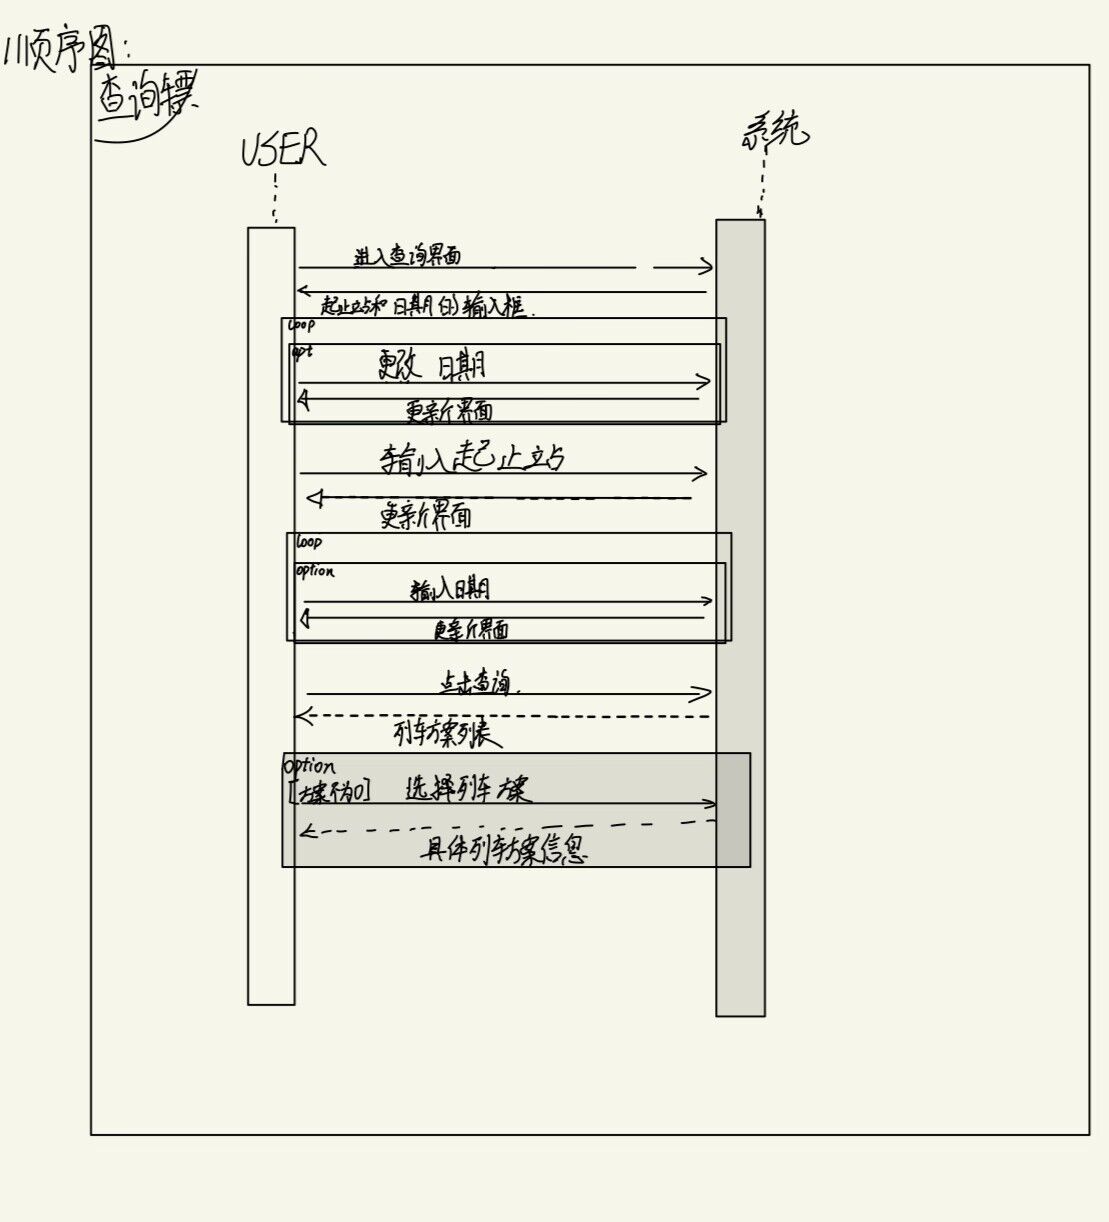 顺序图:
查询镖
USER
系统
进入查询界面
起止站和日期的输入框.
loop
opt
更改 日期
更新界面
输入起止站
更新界面
loop
option
输入日期
更新界面
点击查询.
列车方案列表
option
[方案不为0] 选择列车方案
具体列车方案信息